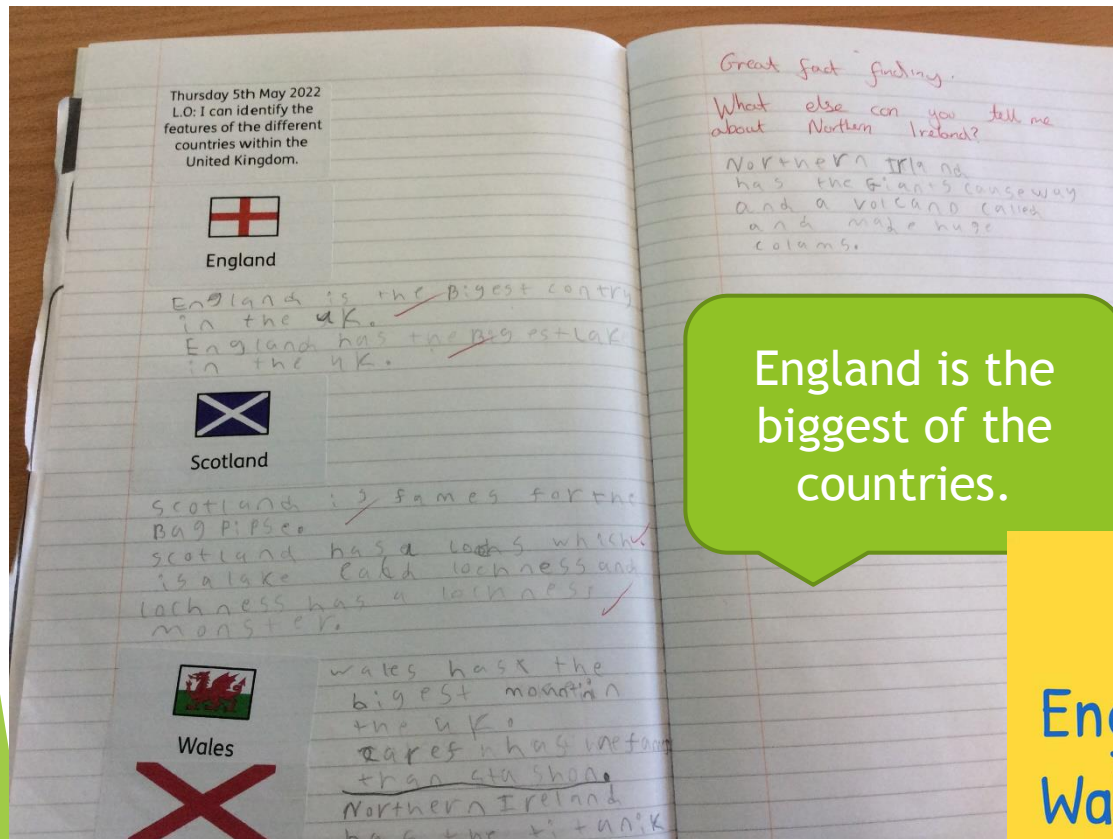 Thursday 5th May 2022
L.O: I can identify the
features of the different
countries within the
United Kingdom.
England
England is the Bigest contry
in the uK.
England has the Bigest Lak
in the uK.
Scotland
scotland is fames for the
Bag PiPse.
scotland has a which
is a lake lochness and
lochness has a lochness
monster.
Wales
wales has the
bigest mountin
the uK.
has
tran sta shon.
Northern Ireland
has the titanik
Great fact finding.
What else can you tell me
about Northern Ireland?
Northern
has the Giants causeway
and a volcano called
and made huge
colams.
England is the
biggest of the
countries.
Eng
Wa